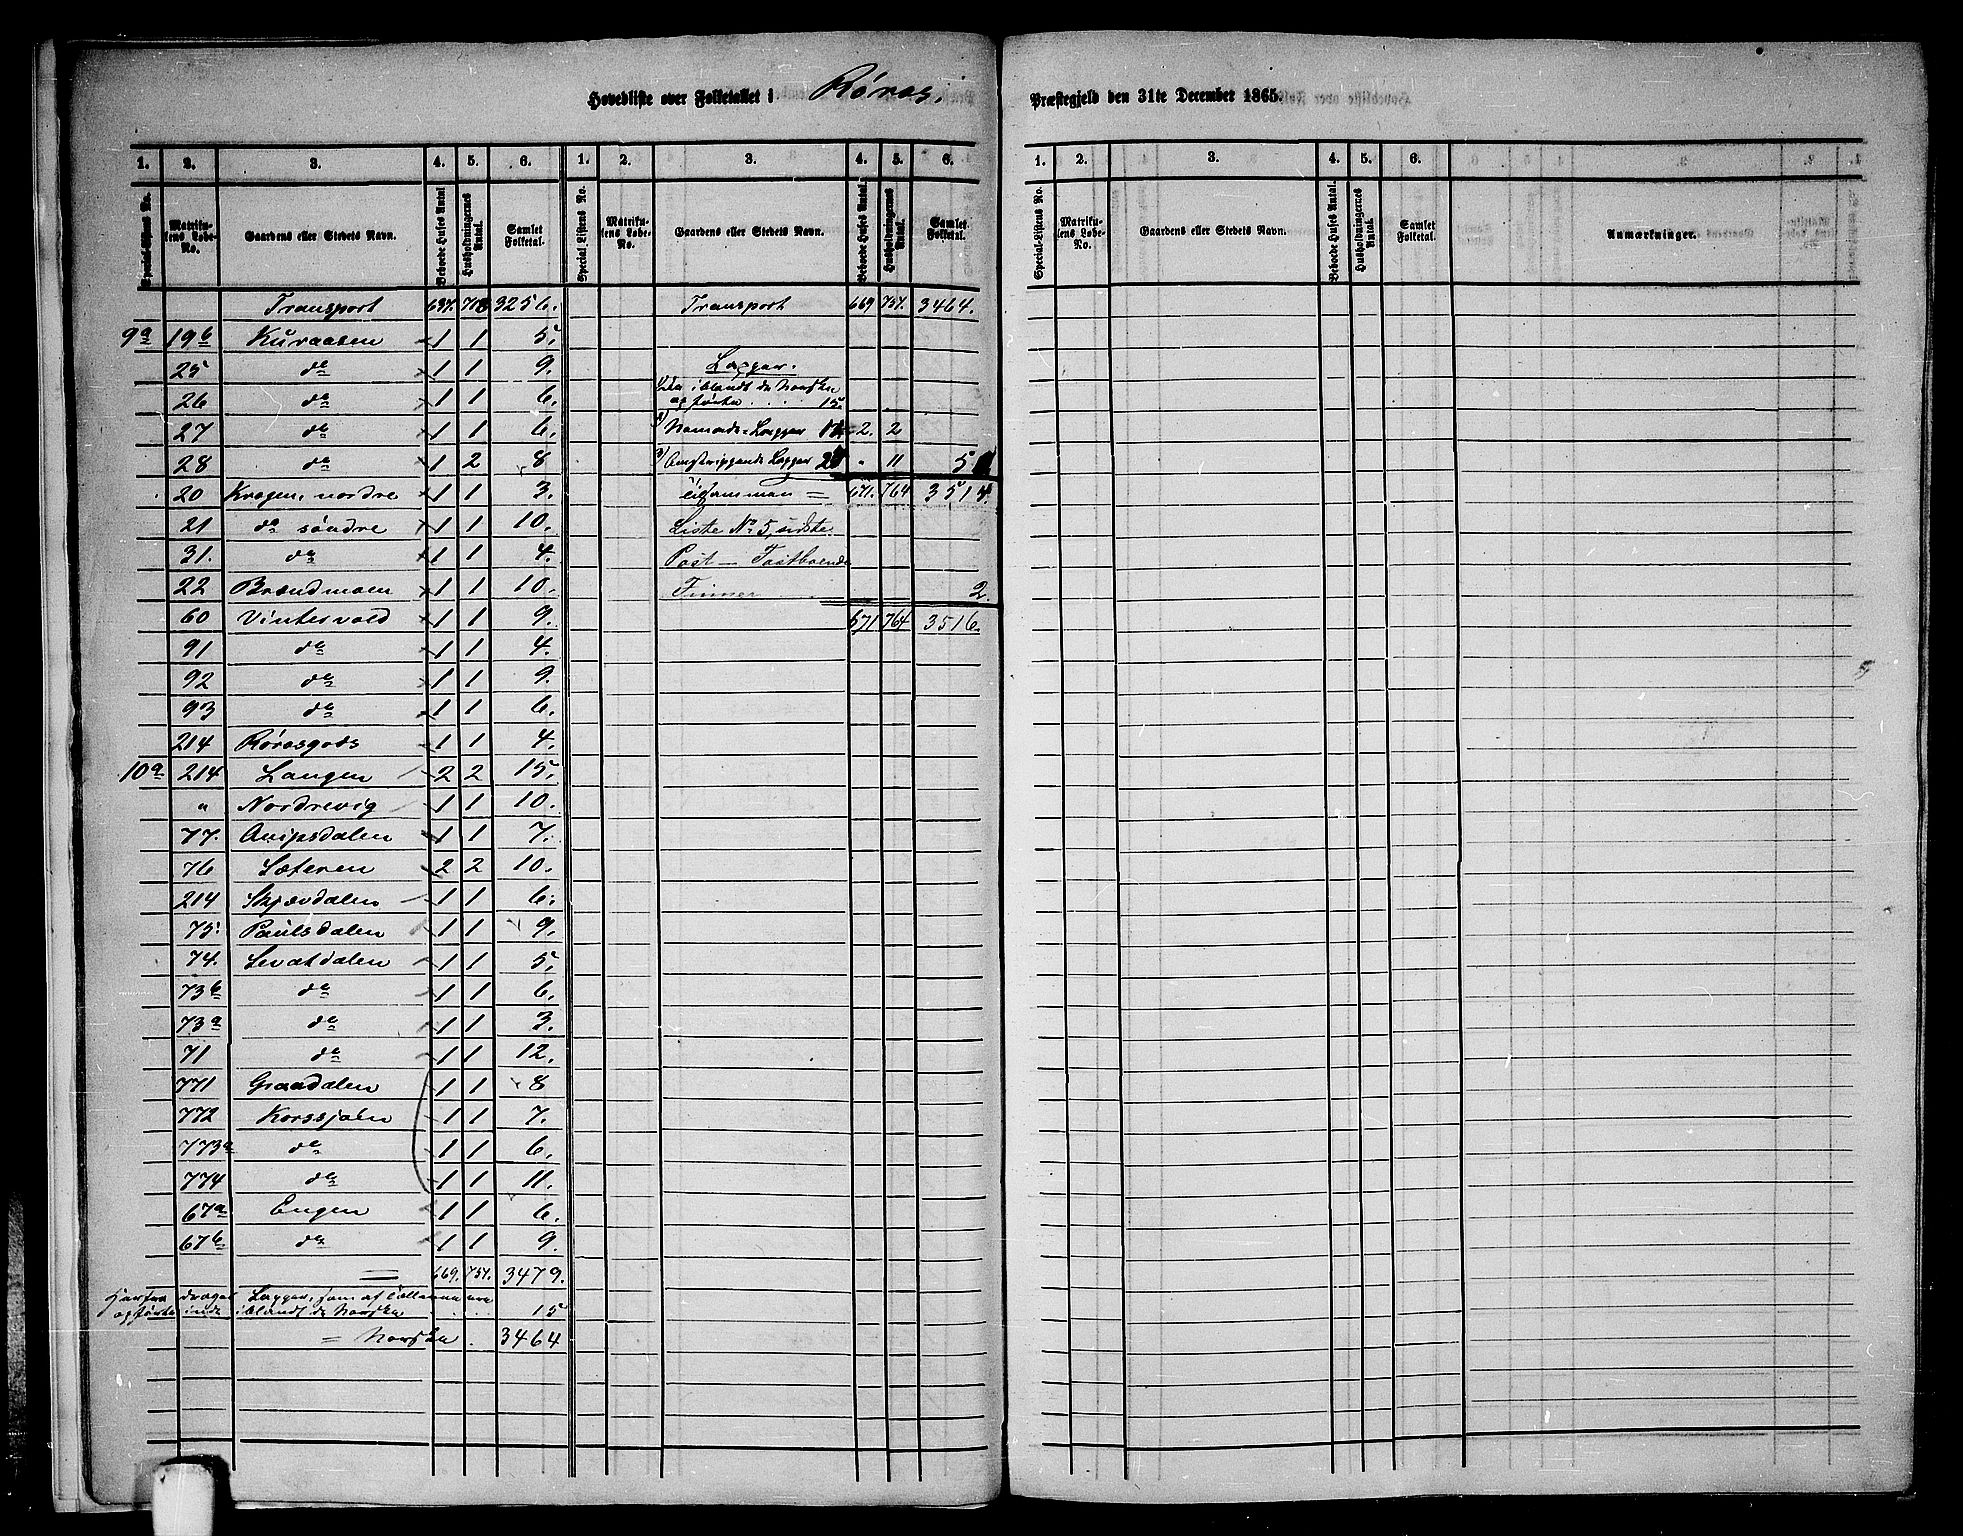 Hovedliste over Folketallet i Røros. Præstegjeld den 31te December 1865.
1. 2. 3. 4. 5. 6. 1. 2. 3. 4. 5. 6.
Special-Listens No. Matrikulens Løbe-No. Gaardens eller Stedets Navn. Beboede Huses Antal Husholdningernes Antal. Samlet Folketal. Special-Listens No. Matrikulens Løbe-No. Gaardens eller Stedets Navn. Beboede Huses Antal. Husholdningernes Antal. Samlet Folketal.
Transport 637. 3256.
9a 19b Kuraasen 1 1 5.
25 do 1 1 9.
26 do 1 1 6.
27 do 1 1 6.
28 do 1 2 8
20 Kragen, nordre 1 1 3.
21 do søndre 1 1 10.
31. do 1 1 4.
22 Brændmoen 1 1 10.
60 Vintervold 1 1 9.
91 do 1 1 4.
92 do 1 1 9.
93 do 1 1 6.
214 Rørosgods 1 1 4.
10a 214 Langen 2 2 15.
" Nordrevig 1 1 10.
77. Avipsdalen 1 1 7.
76 Sæteren 2 2 10.
214 Skjævdalen 1 1 6.
75. Paulsdalen 1 1 9.
74. Sevatdalen 1 1 5.
73b do 1 1 6.
73a do 1 1 3.
71 do 1 1 12.
771 Graadalen 1 1 8
772 Korssjøen 1 1 7.
773a do 1 1 6.
774 do 1 1 11.
67a Engen 1 1 6.
67b do 1 1 9.
= 669. 757. 3479.
Herfra drages Lapper, som af
opførte inde iblandt de Norske 15
= Norske . 3464
Transport 669 757. 3464.
Lapper.
iblandt de Norske
opførte . . . 15.
2) Nomade-Lapper 2. 2
3) Omstrippende Lapper " 11
Tilsammen = 671. 764 3514.
Liste No 5, sidste
Post — Fastboende
Finner 2.
671 764 3516.
1. 2. 3. 4. 5. 6.
Special-Listens No. Matrikulens Løbe-No. Gaardens eller Stedets Navn. Beboede Huses Antal. Husholdningernes Antal. Samlet Folketal. Anmærkninger.